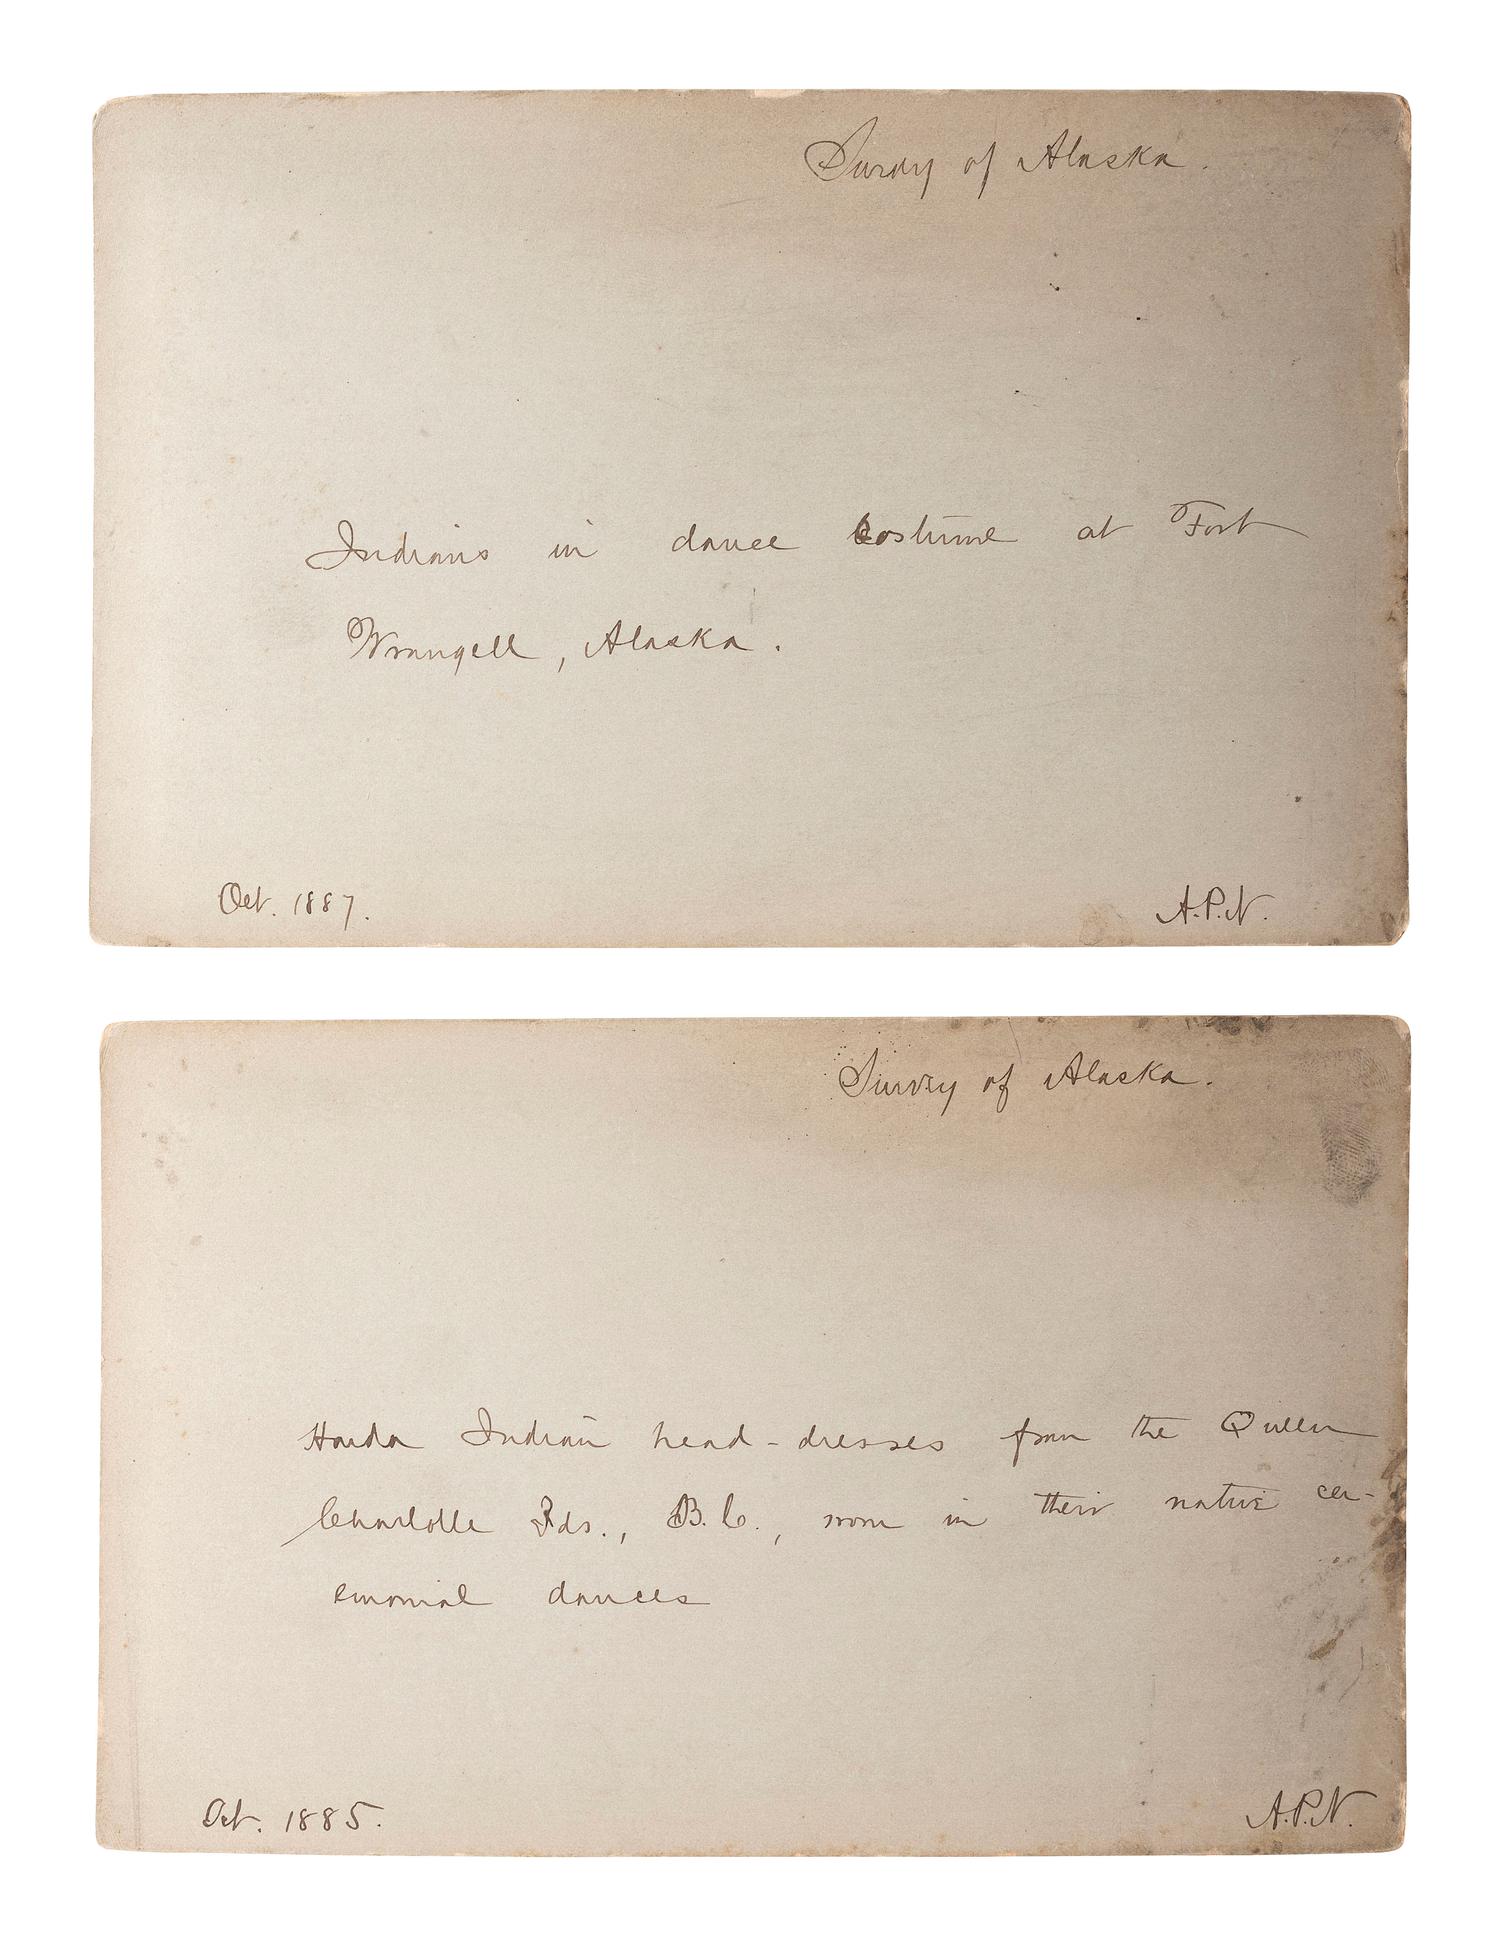 Survey of Alaska.
Indians in dance Costume at Fort
Wrangell, Alaska.
Oct. 1887.
A.P.N.
Survey of Alaska.
Haida Indian head-dresses from the Queen
Charlotte Ids., B.C., worn in their native cer-
emonial dances
Oct. 1885.
A.P.N.